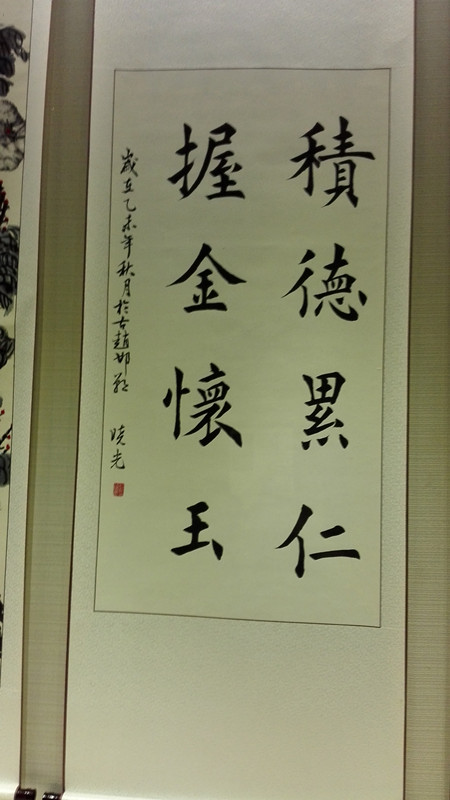 積德累仁
握金懷玉
歲在乙未年秋月於古趙邯鄲
曉光